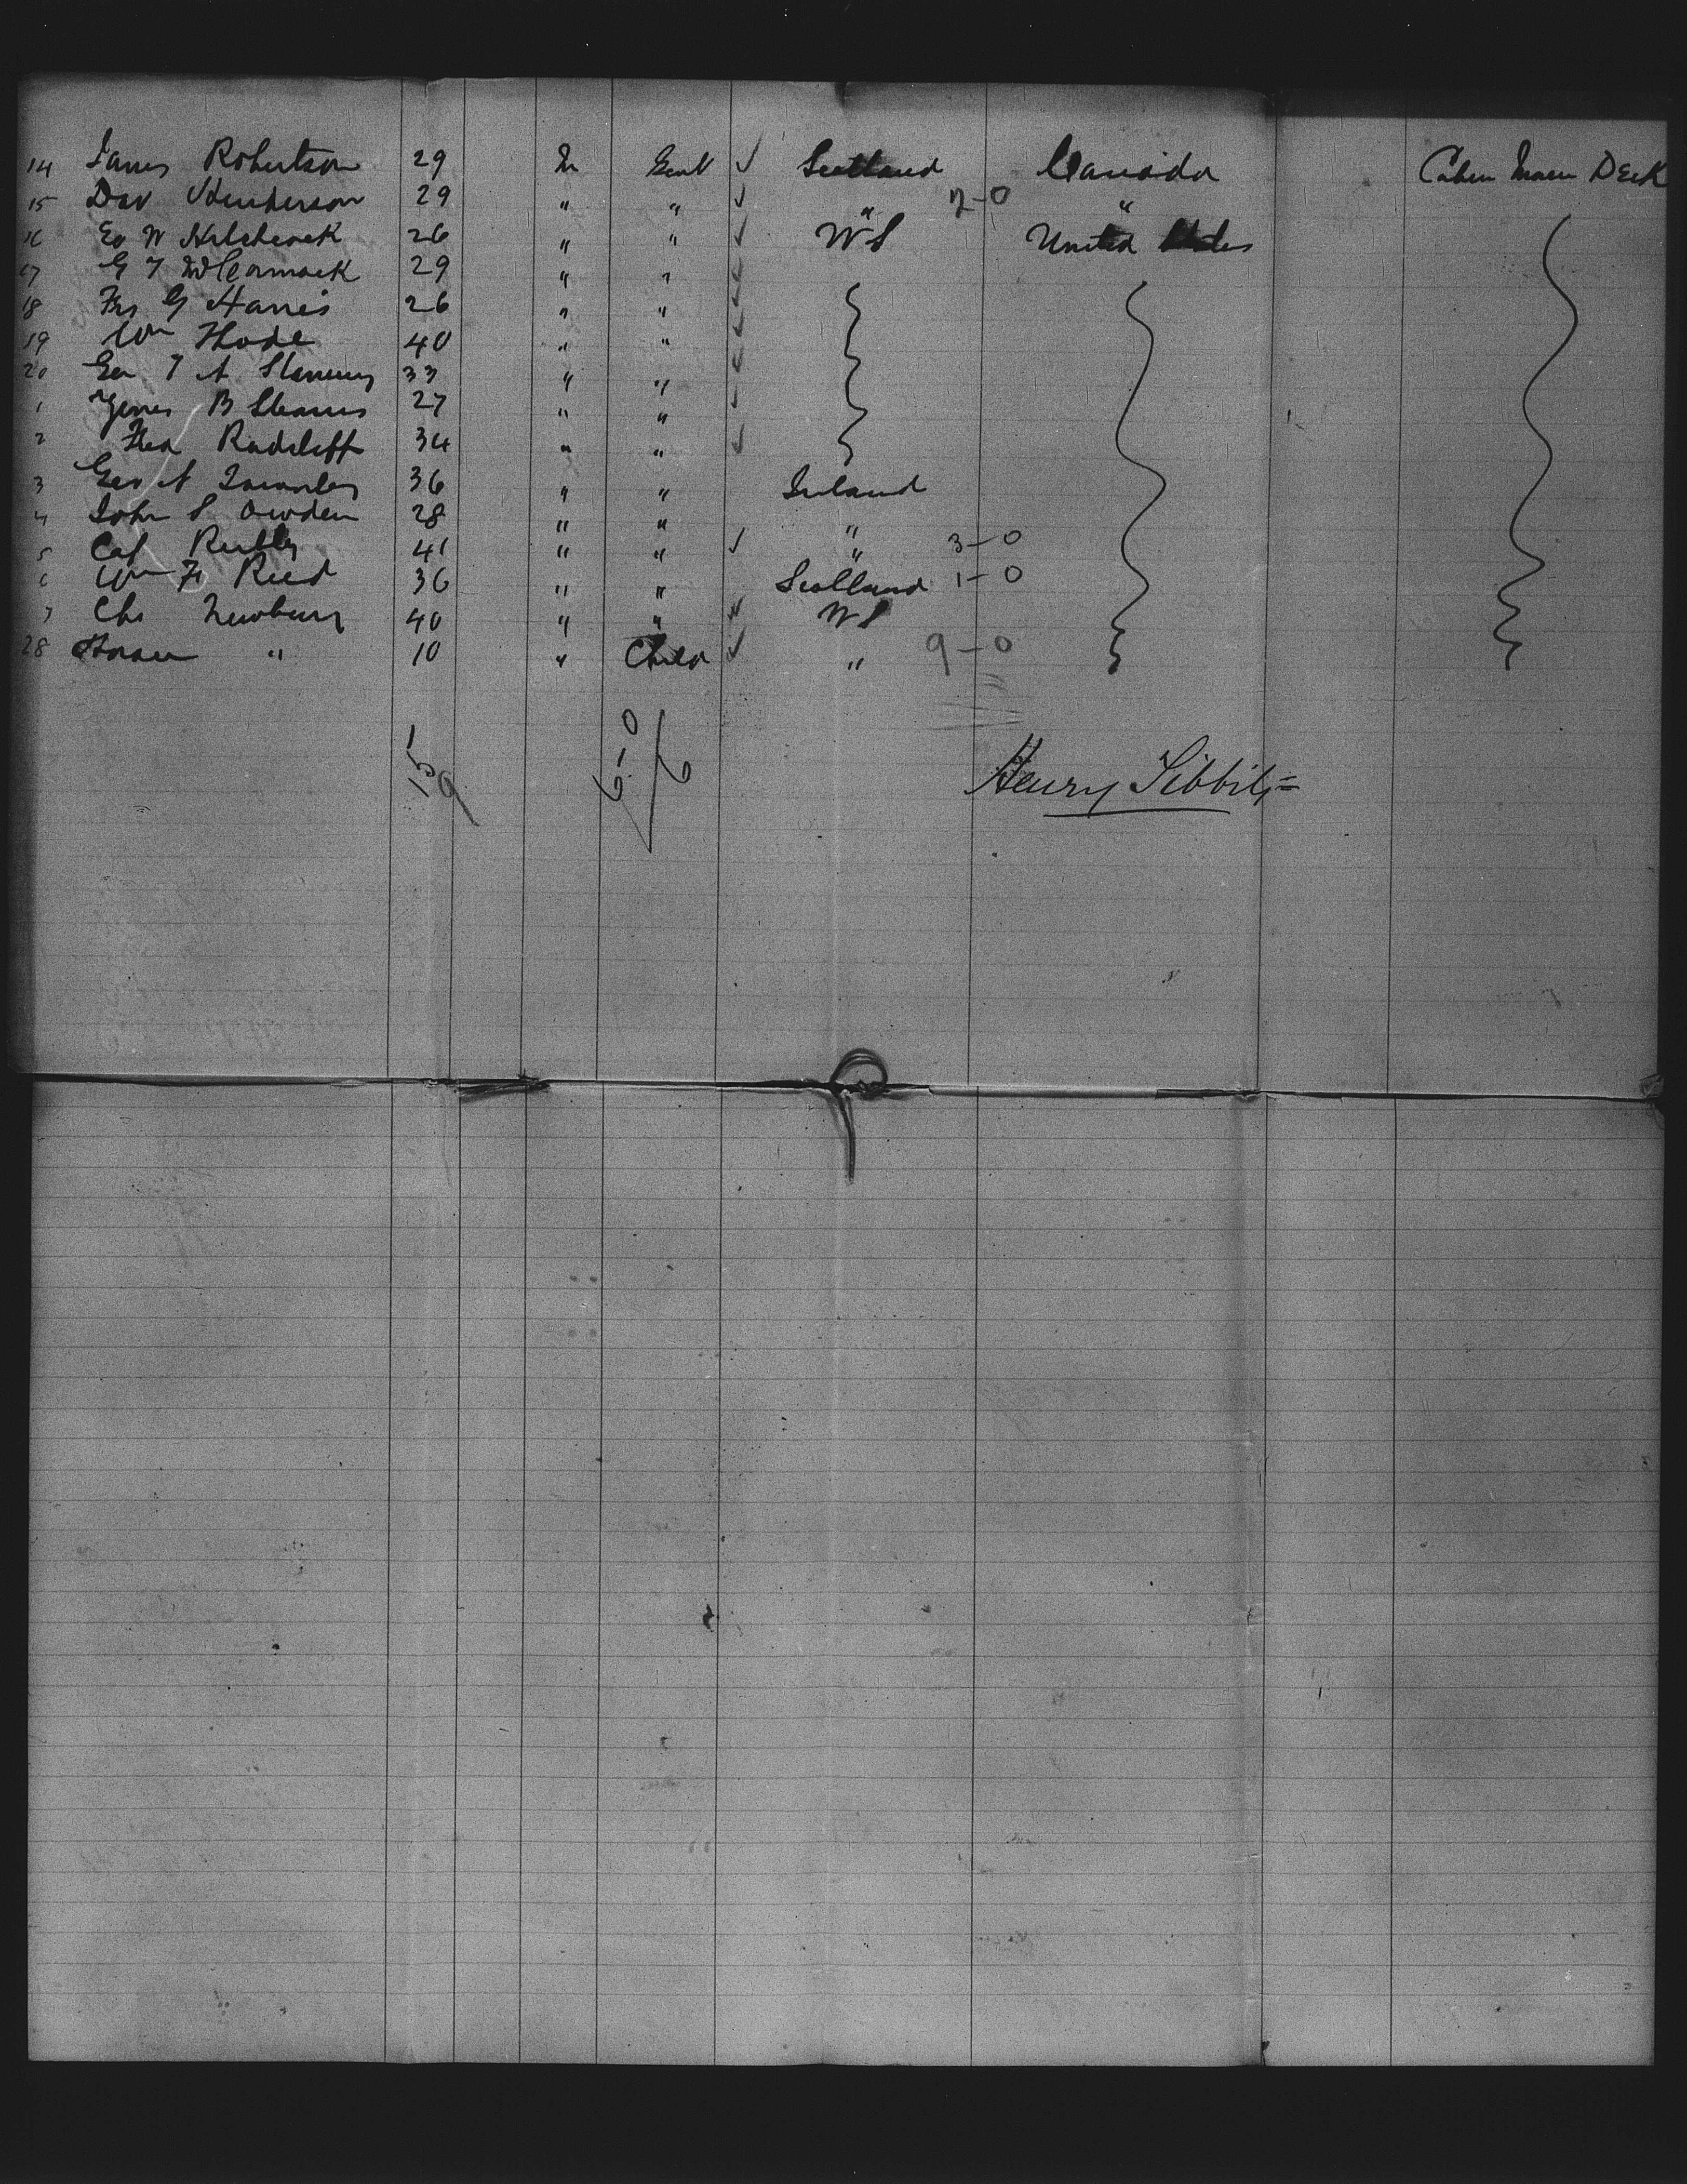 14 James Robertson 29 M Gent ✓ Scotland Canada Cabin Main Deck
15 Dav Henderson 29 " " ✓ " 2-0 "
16 Ed W 26 " " ✓ US United States
17 G T McCormack 29 " " ✓
18 Frs G Harris 26 " " ✓
19 Wm Hode 40 " " ✓
20 Geo T A 33 " " ✓
1 B Stearns 27 " " ✓
2 Fred Radcliff 34 " " ✓
3 Geo A 36 " " Ireland
4 John S Owden 28 " " "
5 Cap 41 " " ✓ " 3-0
6 Wm F Reed 36 " " Scotland 1-0
7 Chs Newbury 40 " " ✓ US
28 Horace " 10 " Child ✓ " 9-0
6-0
6
Henry